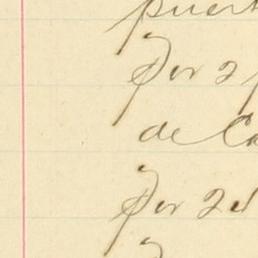 puert
Por 2
de Ca
Por 2d